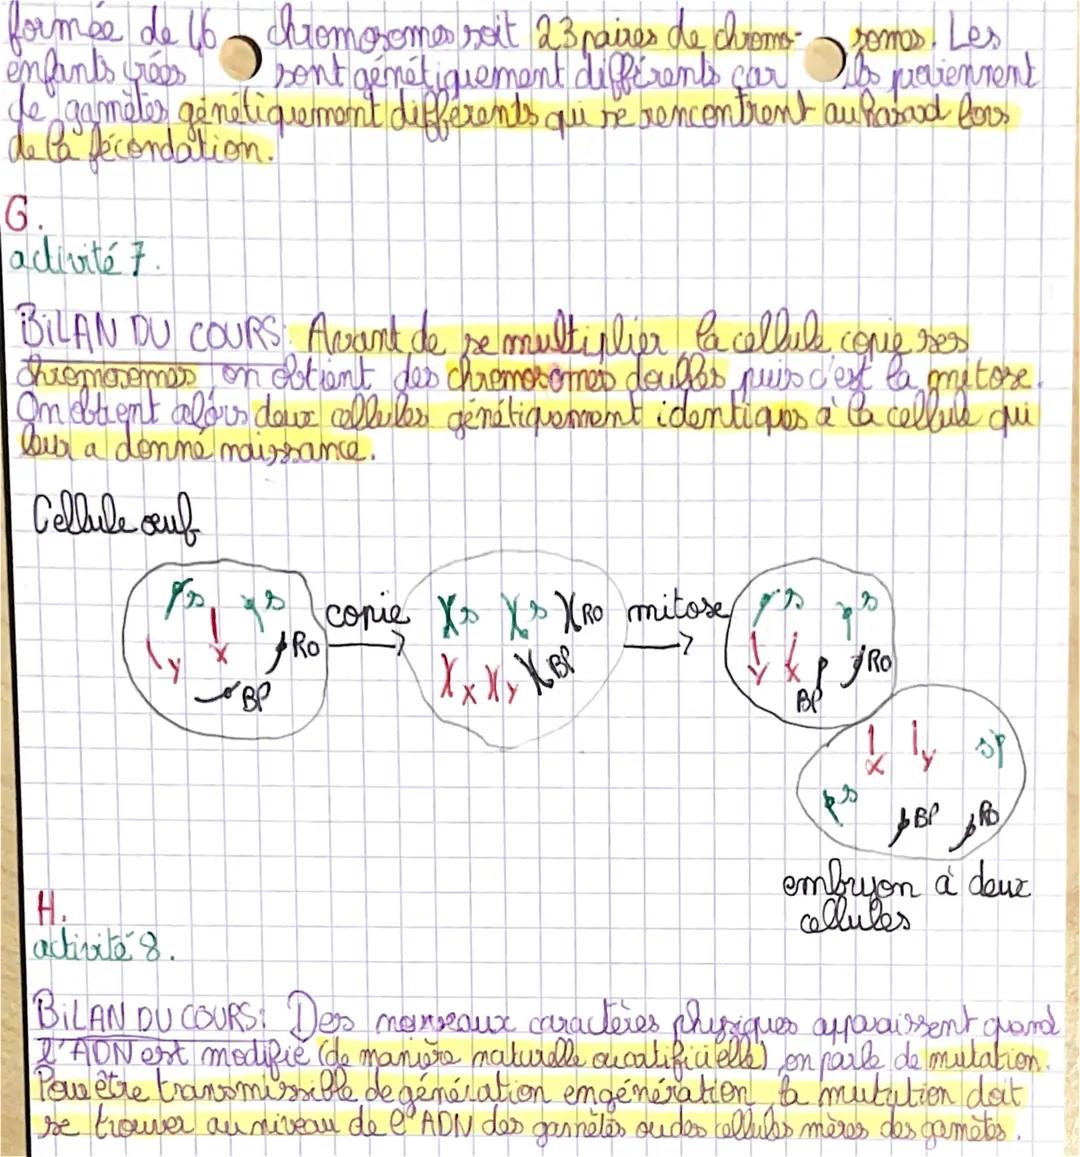 formée de 46 chromosomes soit 23 paires de chromo- somes. Les
enfants créés sont génétiquement différents car ils proviennent
de gamètes génétiquement différents qui se rencontrent au hasard lors
de la fécondation.
G.
activité 7.
BILAN DU COURS: Avant de se multiplier la cellule copie ses
chromosomes, on obtient des chromosomes doubles puis c'est la mitose.
On obtient alors deux cellules génétiquement identiques à la cellule qui
leur a donné naissance.
Cellule œuf
s s y x RO BP
copie
s s RO x y BP
mitose
s s x BP RO
x y s s BP Ro
embryon à deux
cellules
H.
activité 8.
BILAN DU COURS: Des nouveaux caractères physiques apparaissent quand
l'ADN est modifié (de manière naturelle ou artificielle), on parle de mutation.
Pour être transmissible de génération en génération la mutation doit
se trouver au niveau de l'ADN des gamètes ou des cellules mères des gamètes.